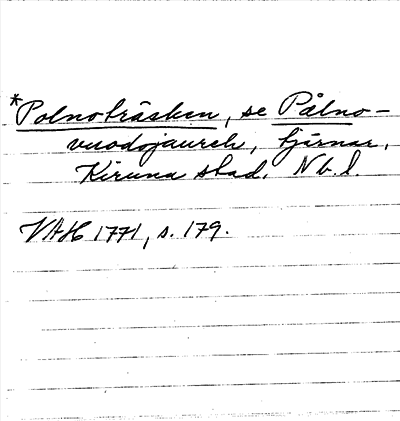 *Polnoträsken, se Pålno-
vuodojaureh, tjärnar,
Kiruna stad, Nb. l.
VAH 1771, s. 179.